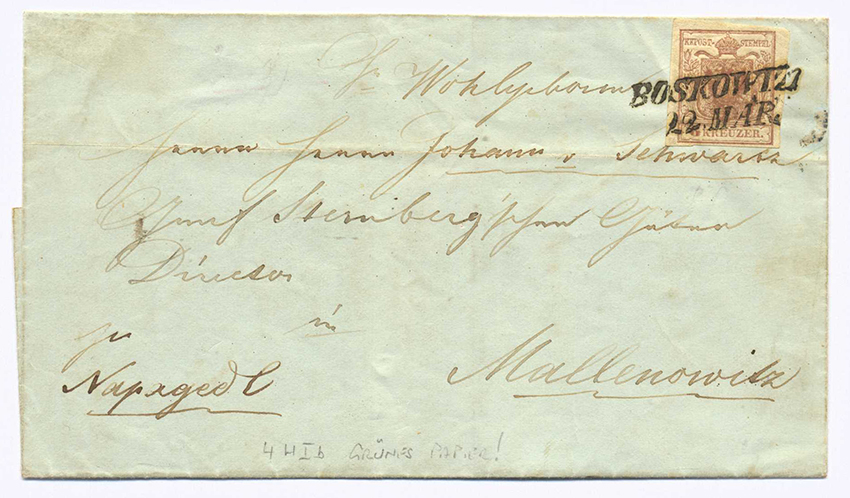 K.K.POST-STEMPEL
BOSKOWITZ
22. MÄR.
KREUZER.
Sr Wohlgeboren
Herrn Herrn Johann v Schwartz
Graf Sternberg'schen Güter
Director
in
zu
Napagedl
Mallenowitz
4 H I b GRÜNES PAPIER!